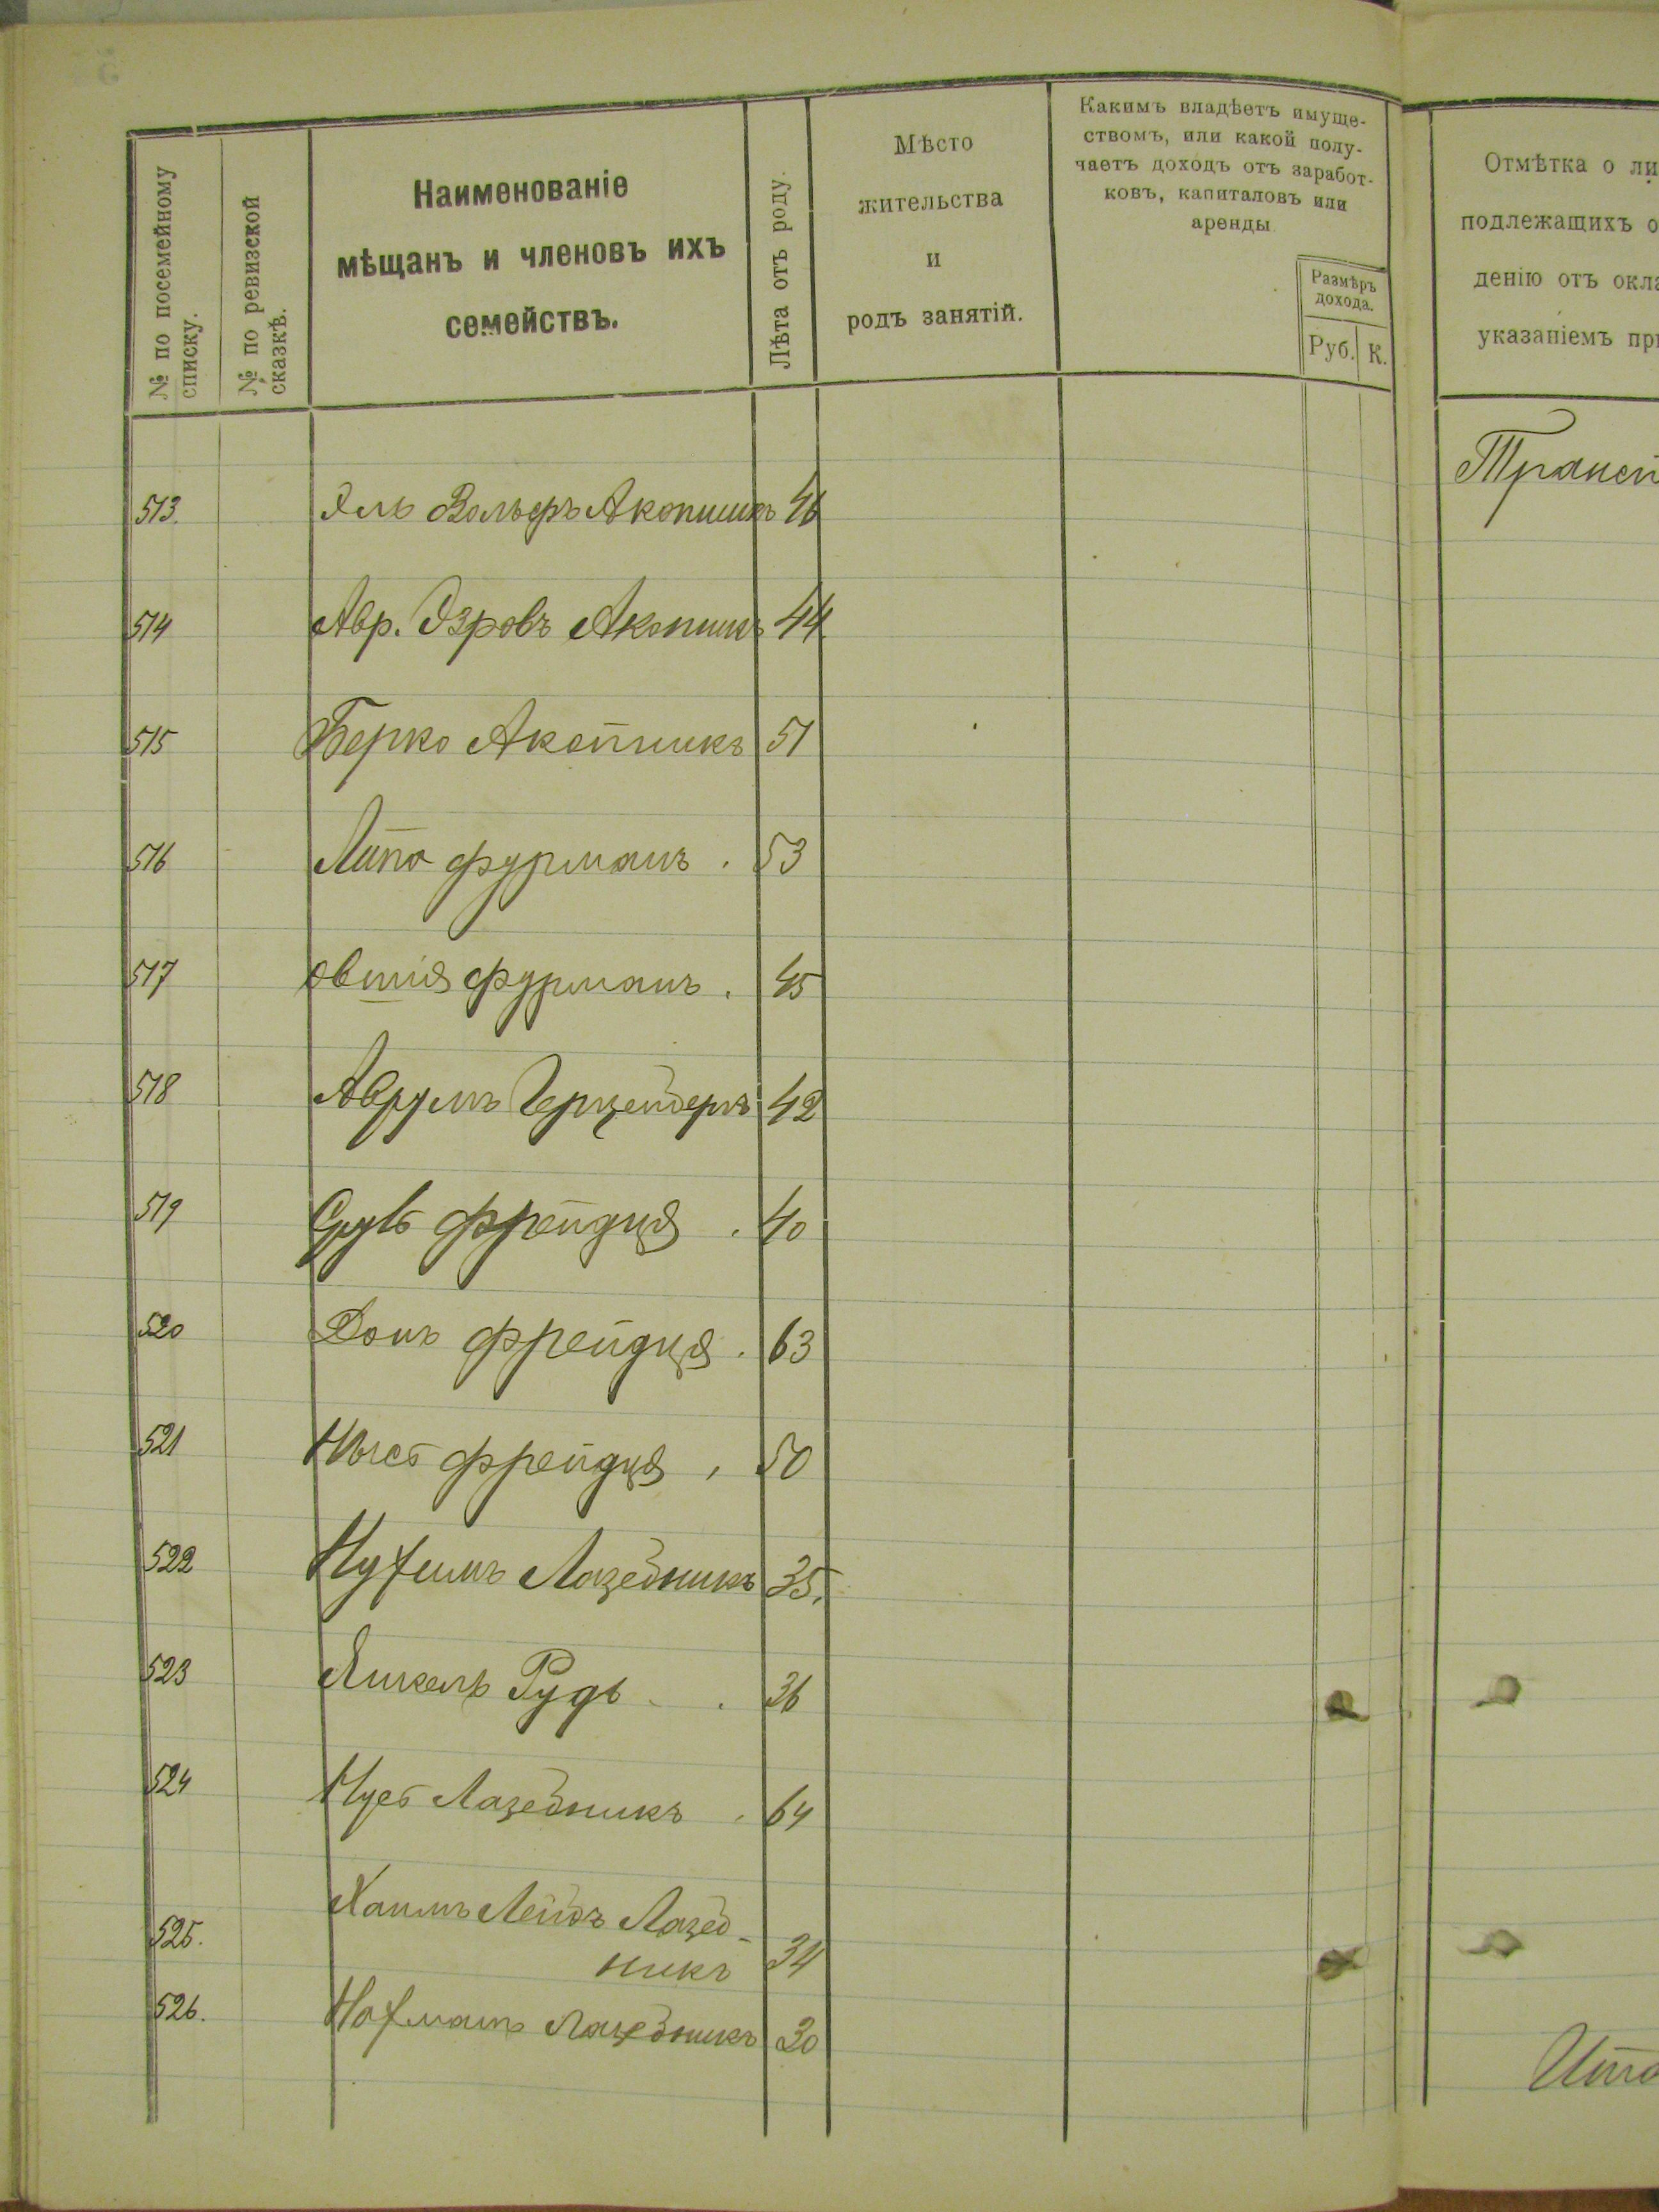 № по посемейному
списку.
№ по ревизской
сказкѣ.
Наименованіе
мѣщанъ и членовъ ихъ
семействъ.
Лѣта отъ роду.
Мѣсто
жительства
и
родъ занятій.
Какимъ владѣетъ имуще-
ствомъ, или какой полу-
чаетъ доходъ отъ заработ-
ковъ, капиталовъ или
аренды
Размѣръ
дохода.
Руб. К.
Отмѣтка о ли
подлежащихъ о
денію отъ окла
указаніемъ при
Трансп
513. Эль Вольфъ Акопникъ 46
514 Авр. Озровъ Акопникъ 44
515 Берко Акопникъ 51
516 Липа Фурманъ . 53
517 Овшія Фурманъ . 45
518 Аврумъ 42
519 Сруль Фрейдця . 40
520 Фрейдця . 63
521 Фрейдця , 50
522 Нухимъ Лазебникъ 35.
523 Янкель Рудь . . 36
524 Лазебникъ . 64
525. Хаимъ Лейбъ Лазеб-
никъ 34
526. Нахманъ Лазебникъ 30
Ито